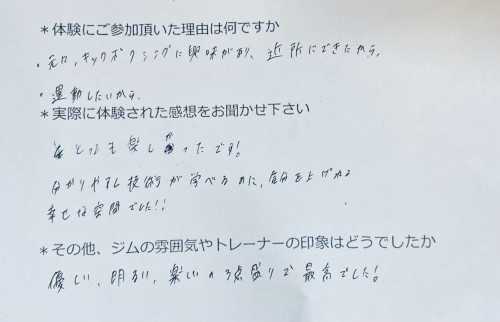 ＊体験にご参加頂いた理由は何ですか
・元々、キックボクシングに興味があり、近所にできたから。
・運動したいから。
＊実際に体験された感想をお聞かせ下さい
とっても楽しかったです!
分かりやすし技術が学べるのに、自分を上げれる
幸せな空間でした!!
＊その他、ジムの雰囲気やトレーナーの印象はどうでしたか
優しい、明るい、楽しいの3点盛りで最高でした!